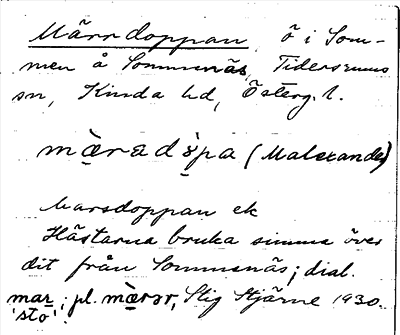 Märrdoppan, ö i Som-
men å Sommenäs, Tidersrums
sn, Kinda hd, Österg. l.
mæ̀radɔ̀pa (Malexander)
Marsdoppan ek
Hästarna bruka simma över
dit från Sommenäs; dial.
mar; pl. mæ̀rər, Stig Stjärne 1930.
'sto'.